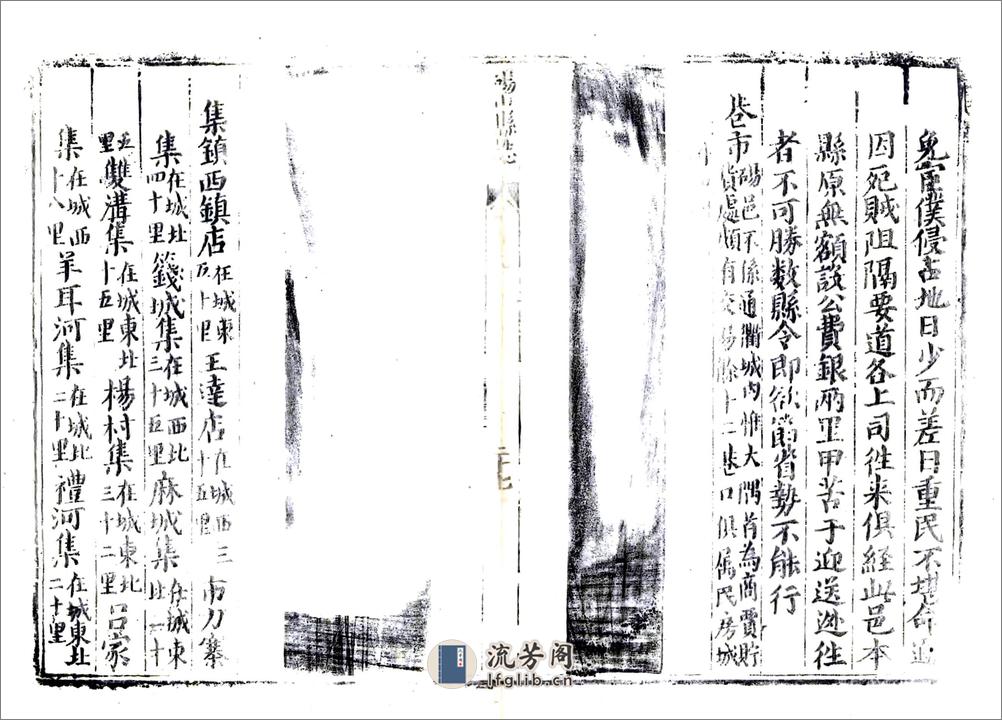 兔臣僕侵占地日少而差日重民不堪命迫
因死賊阻隔要道各上司徃来俱経此邑本
縣原無額設公費銀兩里甲苦于迎送迯徃
者不可勝数縣令即欲節省勢不能行
巷市 碭邑不係通衢城内惟大隅首為商賈貯
貨處頗有交易餘十二巷口俱属民房城
碭山縣誌
二十七
集鎮西鎮店 在城東五十里 王達店 在城西三十五里 南刀寨
集 在城北四十里 籛城集 在城西北三十五里 麻城集 在城東北二十
五里 雙溝集 在城東北十五里 楊村集 在城東北三十二里 吕家
集 在城西十八里 羊耳河集 在城北二十里 禮河集 在城東北二十里
流芳阁
lfglib.cn